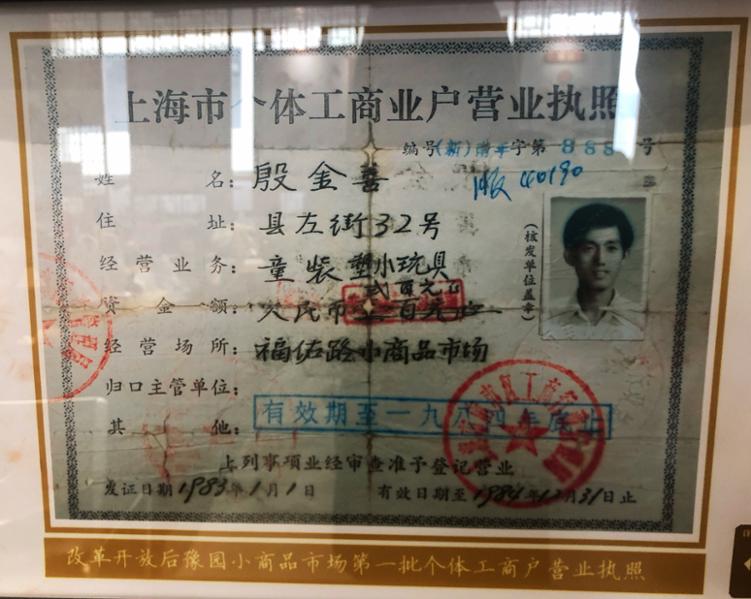 上海市个体工商业户营业执照
编号(新)南字第888号
4090190
姓名：殷金喜
住址：县左街32号
经营业务：童装塑小玩具
弍百元正
资金额：人民币
经营场所：福佑路小商品市场
归口主管单位：
其他：有效期至一九八四年底止
上列事项业经审查准予登记营业
发证日期1983年1月1日 有效日期至1984年12月31日止
(核发单位盖章)
改革开放后豫园小商品市场第一批个体工商户营业执照